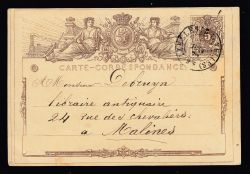 CARTE-CORRESPONDANCE
A Monsieur
libraire antiquaire
24 rue des chevaliers
à Malines